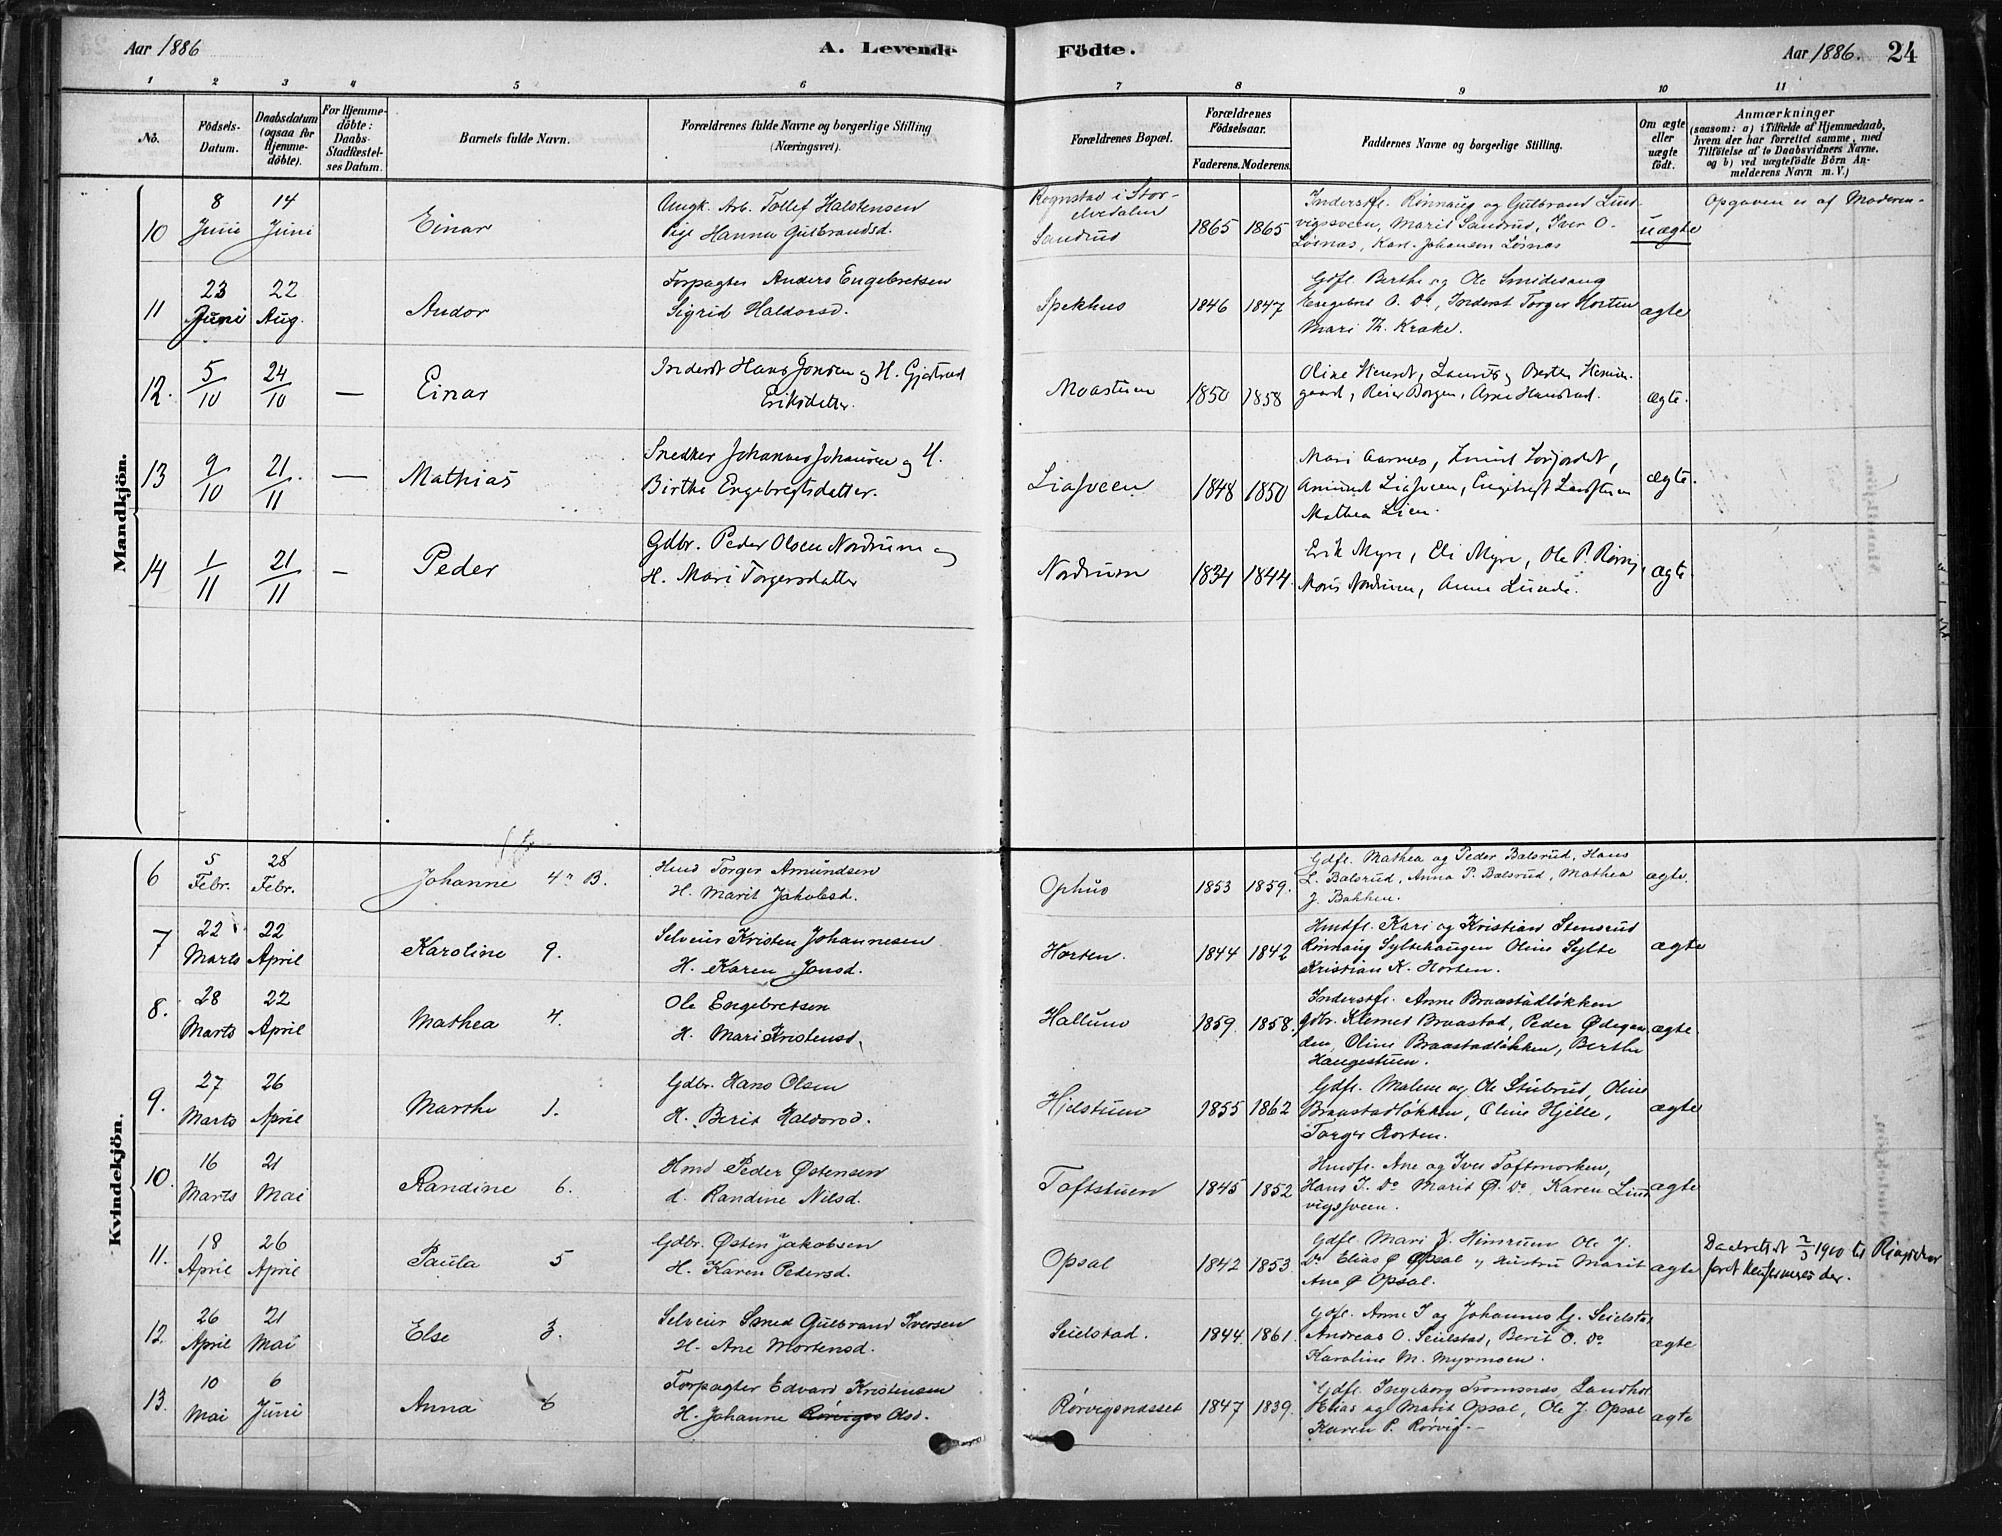 Aar 1886
A. Levende
Födte.
Aar 1886. 24
1 2 3 4 5 6 7 8 9 10 11
No.
Födsels-Datum.
Daabsdatum (ogsaa for Hjemme-döbte).
For Hjemme-döbte: Daabs-Stadfæstel-ses Datum.
Barnets fulde Navn.
Forældrenes fulde Navne og borgerlige Stilling (Næringsvei).
Forældrenes Bopæl.
Forældrenes Födselsaar.
Faderens. Moderens.
Faddernes Navne og borgerlige Stilling.
Om ægte eller uægte födt.
Anmærkninger
(saasom: a) i Tilfælde af Hjemmedaab, hvem der har forrettet samme, med Tilföielse af to Daabsvidners Navne, og b) ved uægtefödte Börn Anmelderens Navn m. V.)
Mandkjön.
10 8 Juni 14 Juni Einar
Ungk. Arb. Tollef Halstensen
Pige Hanna Gulbrandsd.
Rognstad i Stor-
elvedalen
Sandrud
1865 1865
Inderstfl. Rinnaug og Gulbrand Lund-
vigsveen, Marit Sandrud, Iver O.
Løsnæs, Karl Johansen Løsnæs
uægte
Opgaven er af Moderen
11 23 Juni 22 Aug. Andor
Forpagter Anders Engebretsen
Sigrid Haldorsd.
Spekhus 1846 1847
Gdfl. Berthe og Ole Smidesang
Engebret O. Do, Inderst Torger Horten
Mari Th. Krake.
ægte
12. 5/10 24/10 — Einar
Inderst Hans Jonsen og H. Gjertrud
Eriksdatter.
Moastuen 1850 1858
ægte.
13 9/10 21/11. — Mathias
Snedker Johannes Johansen og H.
Birthe Engebregtsdatter.
Liasveen 1848 1850
Mari Aarnes,
Amund Liasveen,
Mathea Lien.
ægte.
14 1/11 21/11 — Peder
Gdbr. Peder Olsen Nordrum og
H. Mari Torgersdatter
Nordrum 1834 1844.
Erik Myre, Eli Myre, Ole P. Rørvig,
Nordrum, Anne Lunde.
ægte
Kvindekjön.
6 5 Febr. 28 Febr. Johanne 4 B.
Hmd Torger Amundsen
H. Marit Jakobsd.
Ophus 1853 1859.
Gdfl. Mathea og Peder Balsrud, Hans
L. Balsrud, Anna P. Balsrud, Mathea
J. Bakken.
ægte.
7 22 Marts 22 April Karoline 9.
Selveier Kristen Johannesen
H. Karen Jonsd.
Horten. 1844 1842
Hmdfl. Kari og Kristian Stensrud
Rinnaug Syltehaugen Oline Sylte
Kristian K. Horten.
ægte
8. 28 Marts 22 April Mathea 4.
Ole Engebretsen
H. Mari Kristensd.
Hallum 1859. 1858.
Inderstfl. Anne Braastadløkken
Gdbr. Klemet Braastad, Peder Ødegaar-
den, Oline Braastadløkken, Berthe
Haugestuen.
ægte
9. 27 Marts 26 April Marthe 1.
Gdbr. Hans Olsen
H. Berit Haldorsd.
Hjelstuen 1855 1862
Gdfl. Malene og Ole Stubrud, Oline
Braastadløkken, Oline Hjelle,
Torger Horten.
ægte
10. 16 Marts 21 Mai Randine 6.
Hmd Peder Østensen
d. Randine Nilsd.
Toftstuen 1845 1852
Hmdfl. Ane og Iver Toftmorken,
Hans I. Do Marit Ø. Do, Karen Lund-
vigsveen.
ægte
11. 18 April 26 April Paula 5
Gdbr. Østen Jakobsen
H. Karen Pedersd.
Opsal 1842 1853
Gdfl. Mari J. Himrum Ole J.
Do Elias Ø Opsal og Hustru Marit
Ane Ø Opsal.
ægte
12. 26 April 21 Mai Else 3.
Selveier Smed Gulbrand Iversen
H. Ane Mortensd.
Seielstad. 1844. 1861.
Gdfl. Anne I og Johannes G. Seielstad
Andreas O. Seielstad, Berit O. Do
Karoline M. Myrmoen.
ægte
13. 10 Mai 6 Juni Anna 6
Forpagter Edvard Kristensen
H. Johanne Olsd.
Rørvigsnæsset 1847 1839.
Gdfl. Ingeborg Tromsnæs, Landh.
Elias og Marit Opsal, Ole J. Opsal
Karen P. Rørvig.
ægte